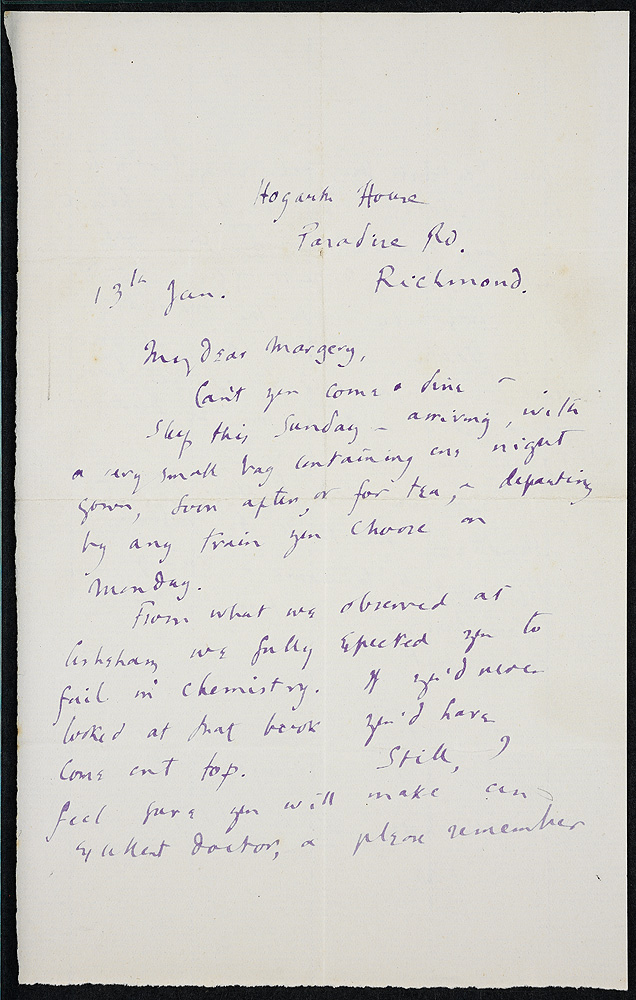 Hogarth House
Paradise Rd.
Richmond.
13th Jan.
My Dear Margery,
Can't you come & dine &
sleep this Sunday - arriving, with
a very small bag containing one night
gown, soon after, or for tea, & departing
by any train you choose on
Monday.
From what we observed at
Asheham we fully expected you to
fail in chemistry. If you'd never
looked at that book you'd have
come out top. Still, I
feel sure you will make an
excellent doctor, & please remember